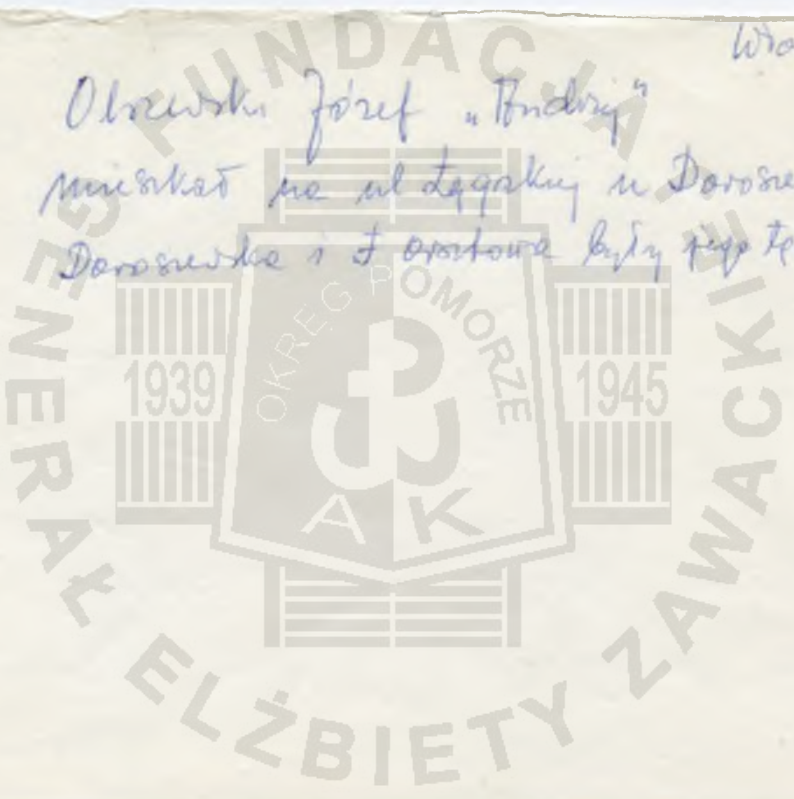 Wło
Olszewski Józef „Andrzej"
mieszkał na ul Łęgskiej u Dorosze
Doroszewska i były jego łą
FUNDACJA
GENERAŁ ELŻBIETY ZAWACKIEJ
OKRĘG POMORZE
1939
1945
AK